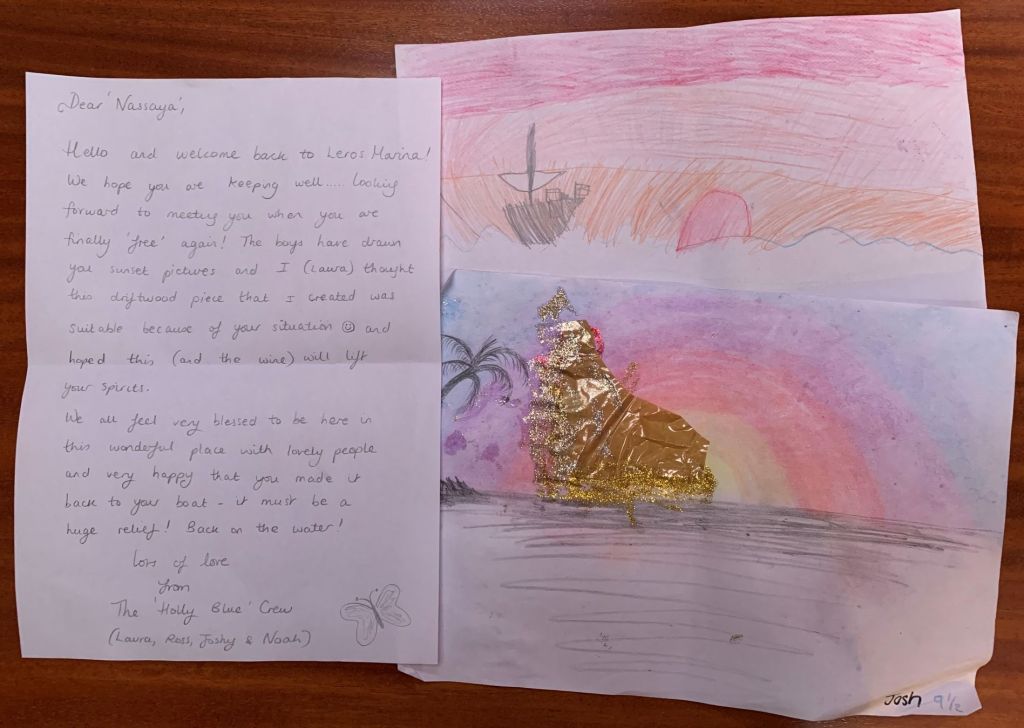 Dear 'Nassaya',
Hello and welcome back to Leros Marina!
We hope you are keeping well..... Looking
forward to meeting you when you are
finally 'free' again! The boys have drawn
you sunset pictures and I (Laura) thought
this driftwood piece that I created was
suitable because of your situation ☺ and
hoped this (and the wine) will lift
your spirits.
We all feel very blessed to be here in
this wonderful place with lovely people
and very happy that you made it
back to your boat - it must be a
huge relief! Back on the water!
Lots of love
from
The 'Holly Blue' Crew
(Laura, Ross, Joshy & Noah)
Josh 9 1/2